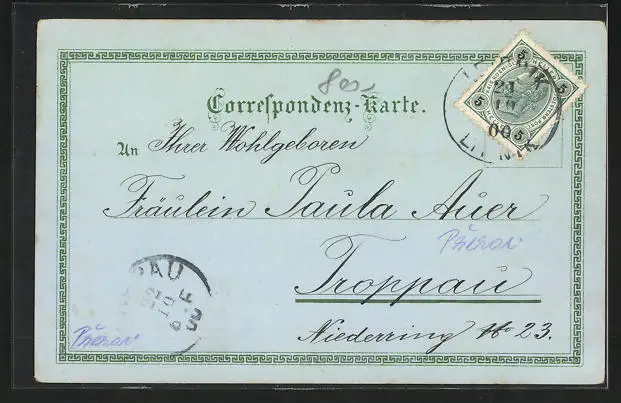 Correspondenz-Karte.
An Ihrer Wohlgeboren
Fräulein Paula Auer
Přerov
Troppau
Niederring No 23.
Přerov
5
5
5
5
21
10
00
PAU
22
10